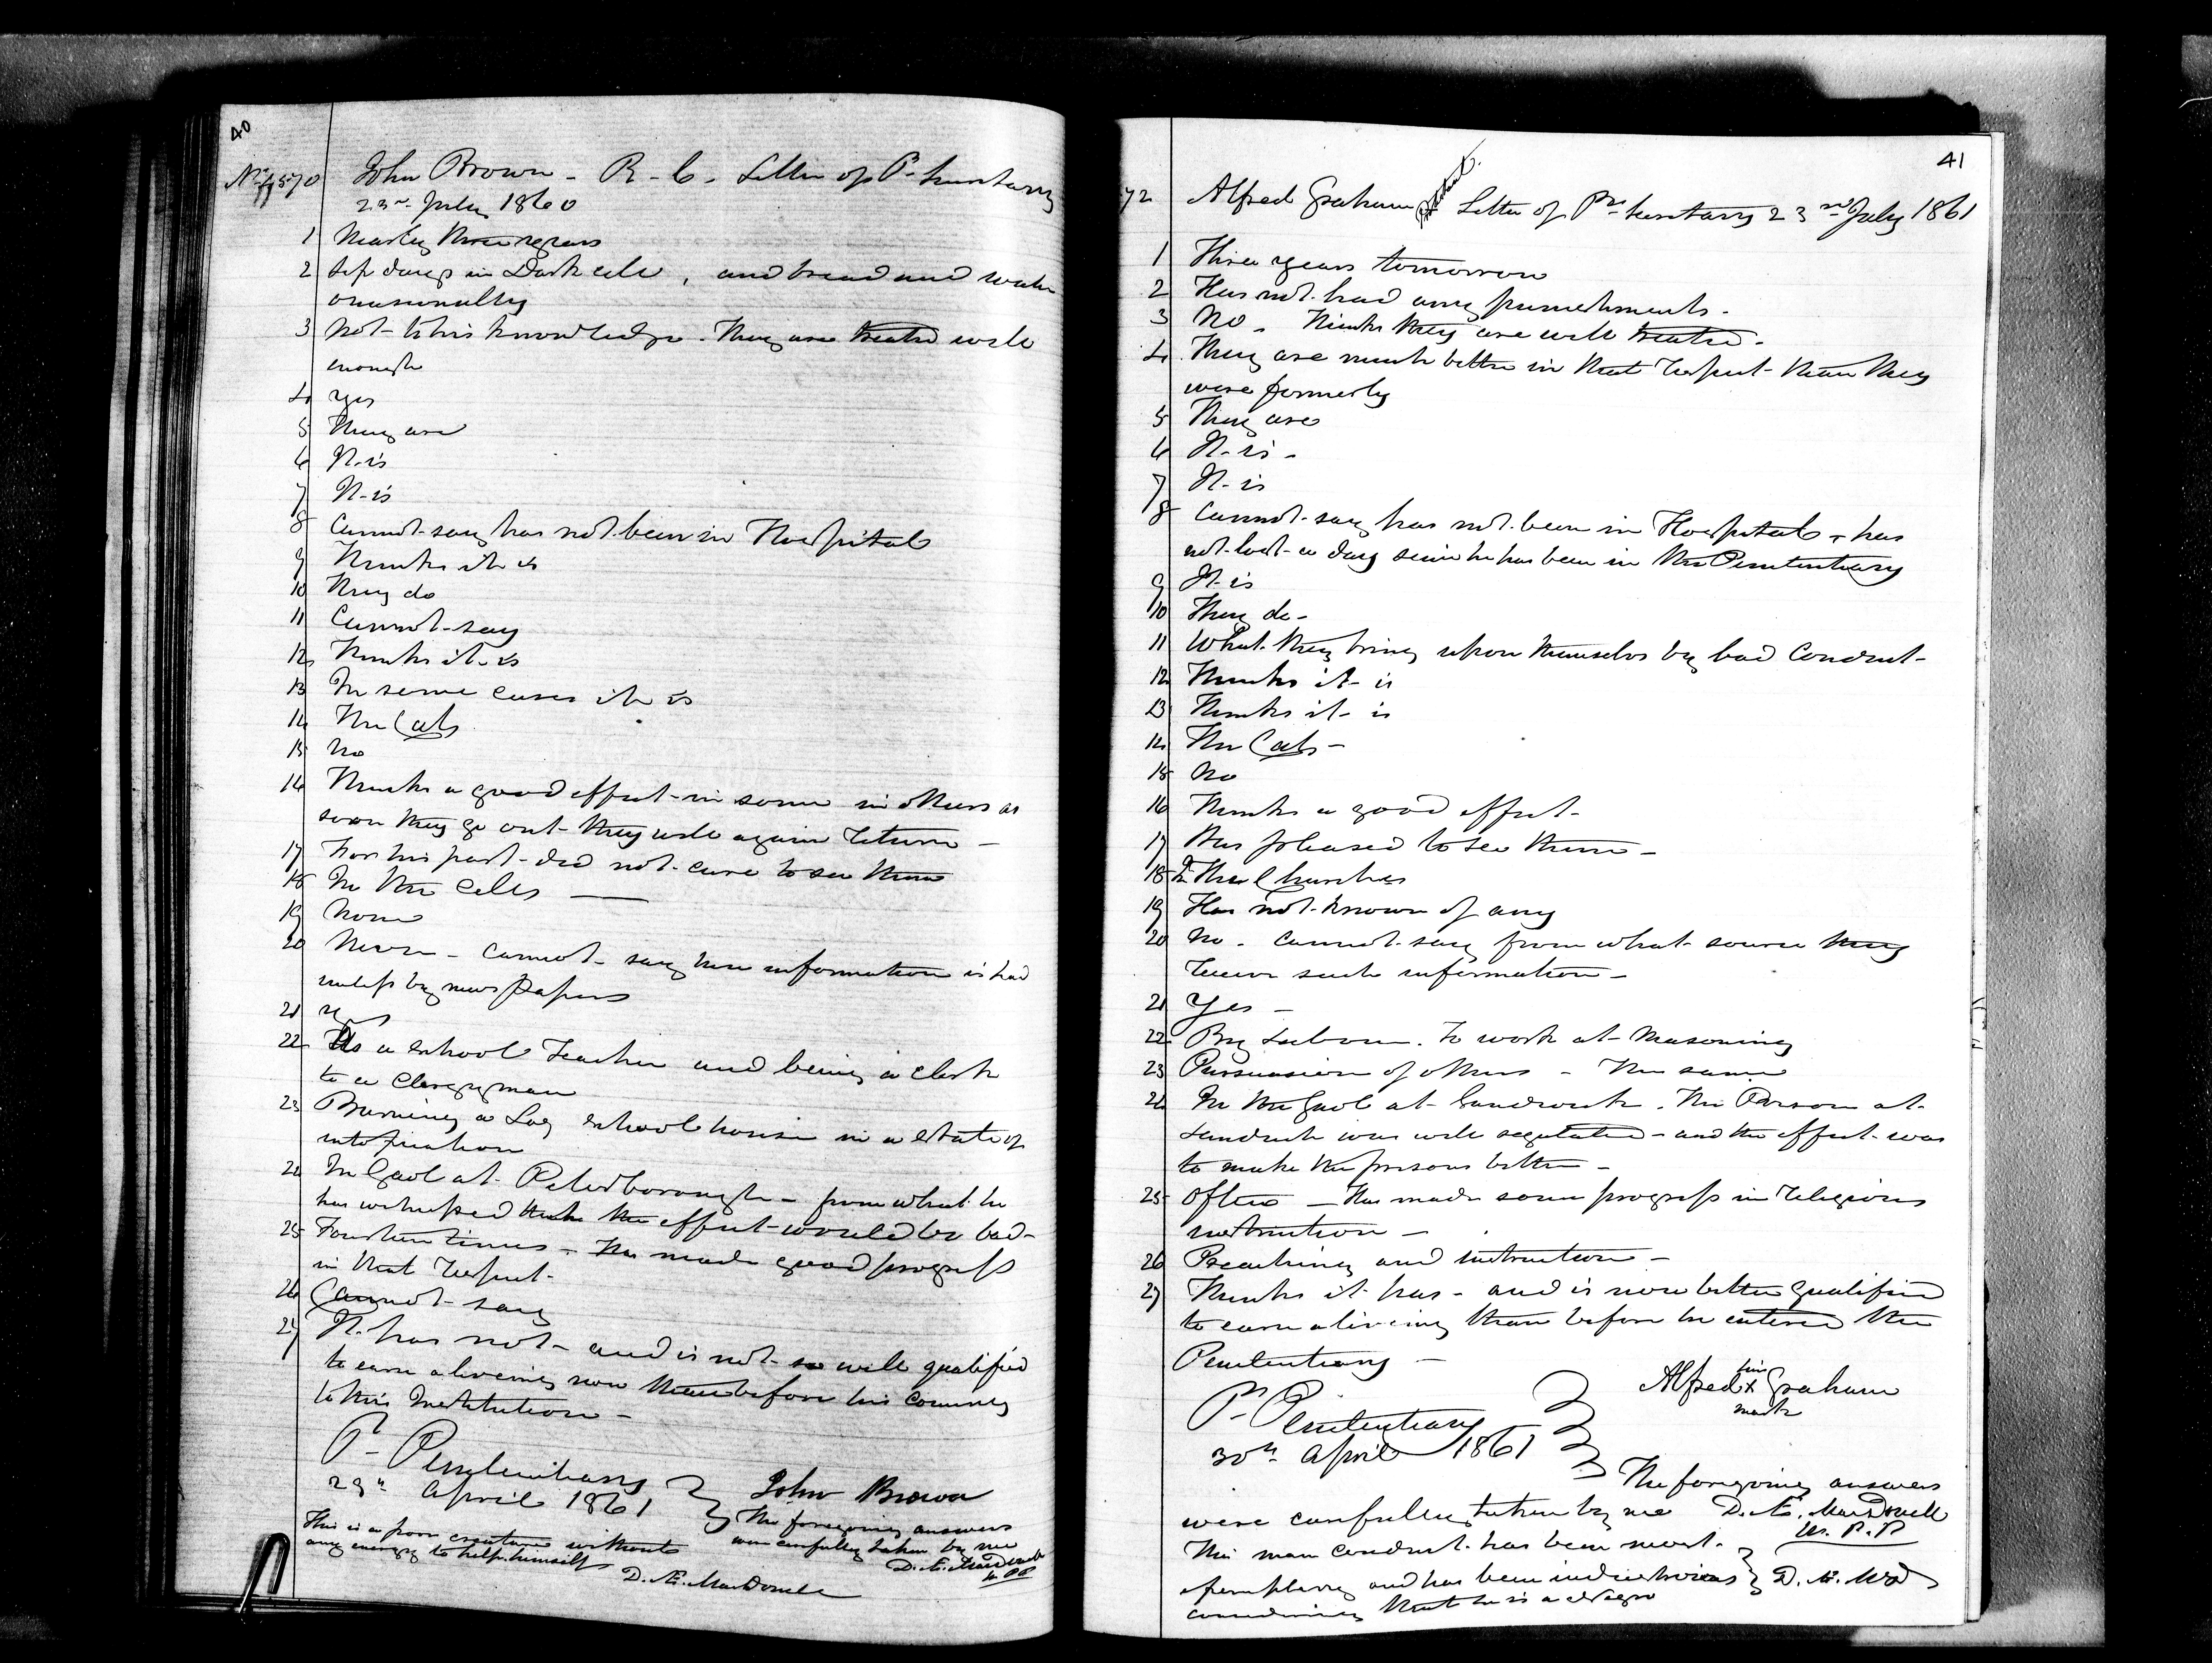 40
John Brown - R - C. Letter of P. Secretary
23rd July 1860
1 Nearly three years
2 Six days in Dark cell, and bread and water
occasionally
3 Not to his knowledge. They are treated well
enough
4 yes
5 They are
6 It is
7 It is
8 Cannot say has not been in Hospital
9 Thinks it is
10 They do
11 Cannot say
12 Thinks it is
13 In some cases it is
14 The Cats
15 No
16 Thinks a good effect in some in others as
soon they go out they will again return -
17 For his part did not care to see them
18 In the cells
19 None
20 Never - cannot say how information is had
unless by news papers
21 yes
22 As a school Teacher and being a clerk
to a Clergyman
23 Burning a Log school house in a state of
intoxication
24 In Gaol at Peterborough - from what he
has witnessed thinks the effect would be bad -
25 Fourteen times - Has made good progress
in that respect -
26 Cannot say
27 It has not - and is not so well qualified
to earn a liveing now than before his comeing
to this Institution -
P. Penitentiary
29th April 1861
John Brown
The foregoing answers
were carefully taken by me
D. Æ. MacDonell
W. P.P
This is a poor creature without
any energy to help himself
D. Æ. MacDonell
41
72 Alfred Graham Protestant. Letter of Prov. Secretary 23rd July 1861
1 Three years tomorrow
2 Has not had any punishments -
3 No - Thinks they are well treated -
4 They are much better in that respect than they
were formerly
5 They are
6 It is -
7 It is
8 Cannot say has not been in Hospital - has
not lost a day since he has been in the Penitentiary
9 It is
10 They do -
11 What they bring upon themselves by bad Conduct -
12 Thinks it is
13 Thinks it is
14 The Cats -
15 No
16 Thinks a good effect -
17 Was pleased to see them -
18 In The Churches
19 Has not known of any
20 No - cannot say from what source they
receive such information -
21 Yes -
22 By Labour. To work at Masoning
23 Persuasion of others - The same
24 In the Gaol at Sandwich. The Prison at
Sandwich was well regulated - and the effect was
to make the prisons better -
25 Often - Has made some progress in religious
instruction -
26 Preaching and instruction -
27 Thinks it has - and is now better qualified
to earn a liveing than before he entered the
Penitentiary -
P. Penitentiary
30th April 1861
Alfred his X mark Graham
The foregoing answers
were carefully taken by me D. Æ. MacDonell
W. P.P
This man conduct has been most
exemplary and has been industrious D. Æ. McD
considering that he is a negro